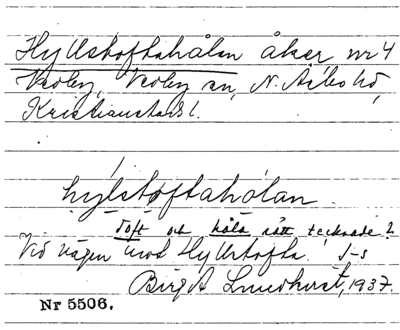 Hyllstoftahålan åker nr 4
Vedby, Vedby sn, N. Åsbo hd,
Kristianstads l.
hylstoftahólan
Toft och håla rätt tecknade?
Vid vägen mot Hyllstofta. J-s
Birgit Lundqvist, 1937.
Nr 5506.